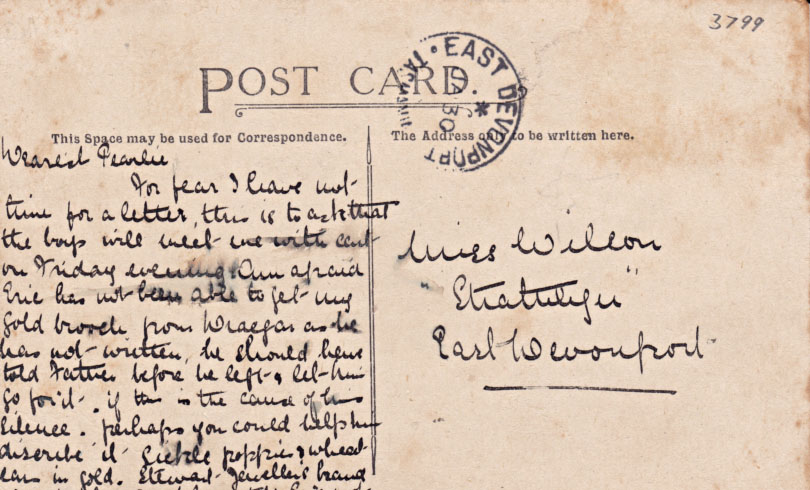 3799
POST CARD.
EAST DEVONPORT
This Space may be used for Correspondence.
The Address only to be written here.
Dearest Pearlie
For fear I have not
time for a letter, this is to ask that
the boys will meet me with cart
on Friday evening. Am afraid
Eric has not been able to get my
gold brooch from as he
has not written, he should have
told Father before he left & let him
go for it. if this is the cause of his
silence. perhaps you could help him
discribe it Sickle poppies & wheat
ears in gold. Stewart Jewellers brand
Miss Wilson
East Devonport